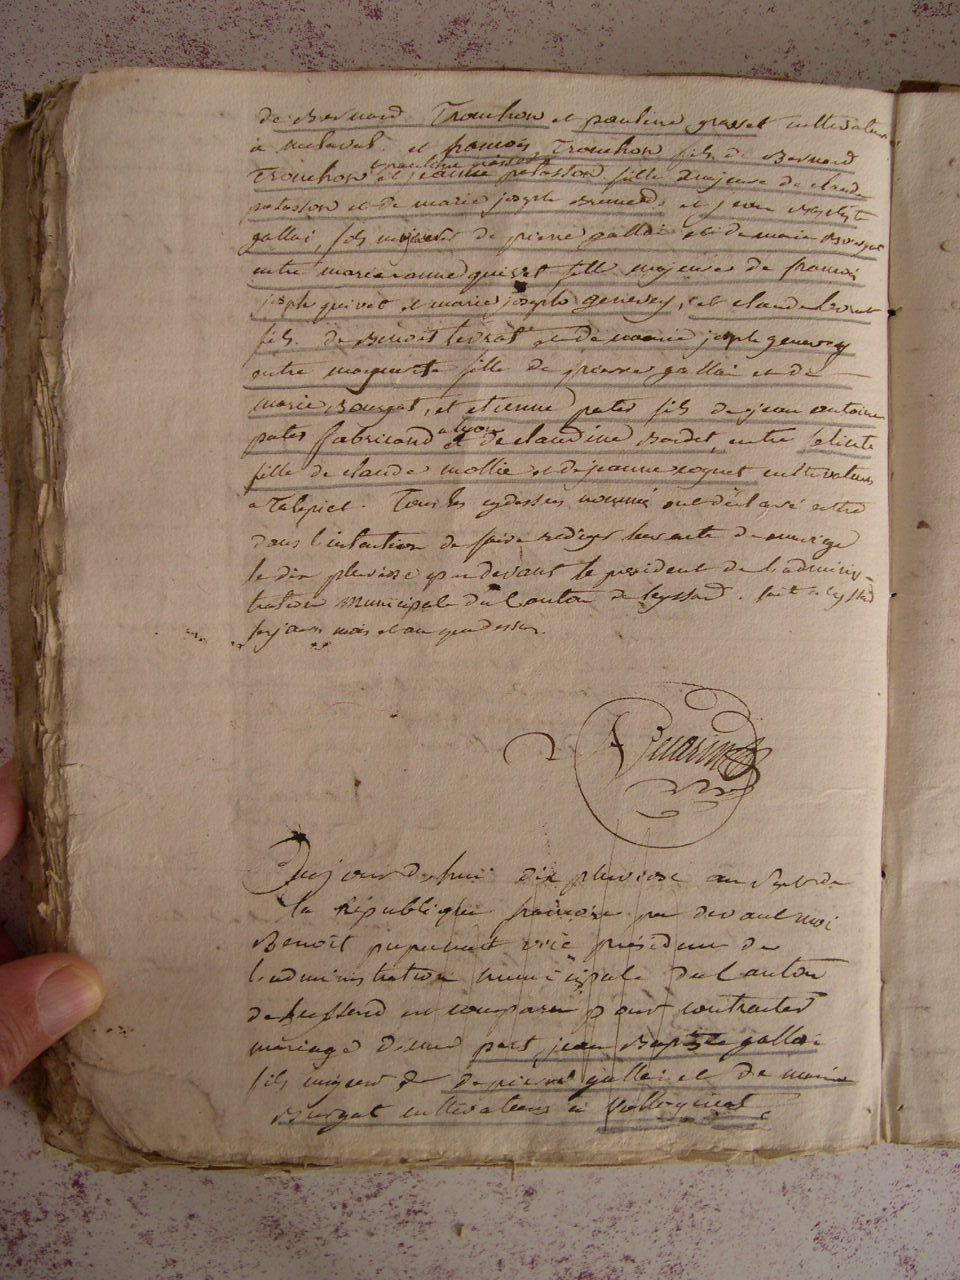 de Bernard Tronchon et pauline grosset cultivateur
à et françois Tronchon fils de Bernard
Tronchon et pauline grosset et jeanne polosson fille majeure de claude
polosson et de marie josephe et jean Baptiste
gallai, fils majeur de pierre gallai et de marie Bourgat
entre marie anne quivet fille majeure de françois
joseph quivet et marie josephe genevey, et claude levrat
fils de Benoit levrat et de marie josephe genevey
entre marguerite fille de pierre gallai et de
marie Bourgat, et etienne pater fils de jean antoine
pater fabricand a lyon et de claudine Bordet, entre
fille de claude mollie et de jeanne roquet cultivateurs
a Talipiet. Tous les cydessus nommés ont déclaré estre
dans l'intention de faire rediger leur acte de mariage
le dix pluviose par devant le president de l'adminis-
tration municipale du Canton de leyssard. fait a leyssard
les jours mois et an que dessus.
Aujourdhui dix pluviose an sept de
la République françoise par devant moi
Benoît vice président de
l'administration municipale du Canton
de leyssard en comparu pour contracter
mariage d'une part jean Baptiste gallai
fils majeur de de pierre gallai et de marie
Burgat cultivateurs à